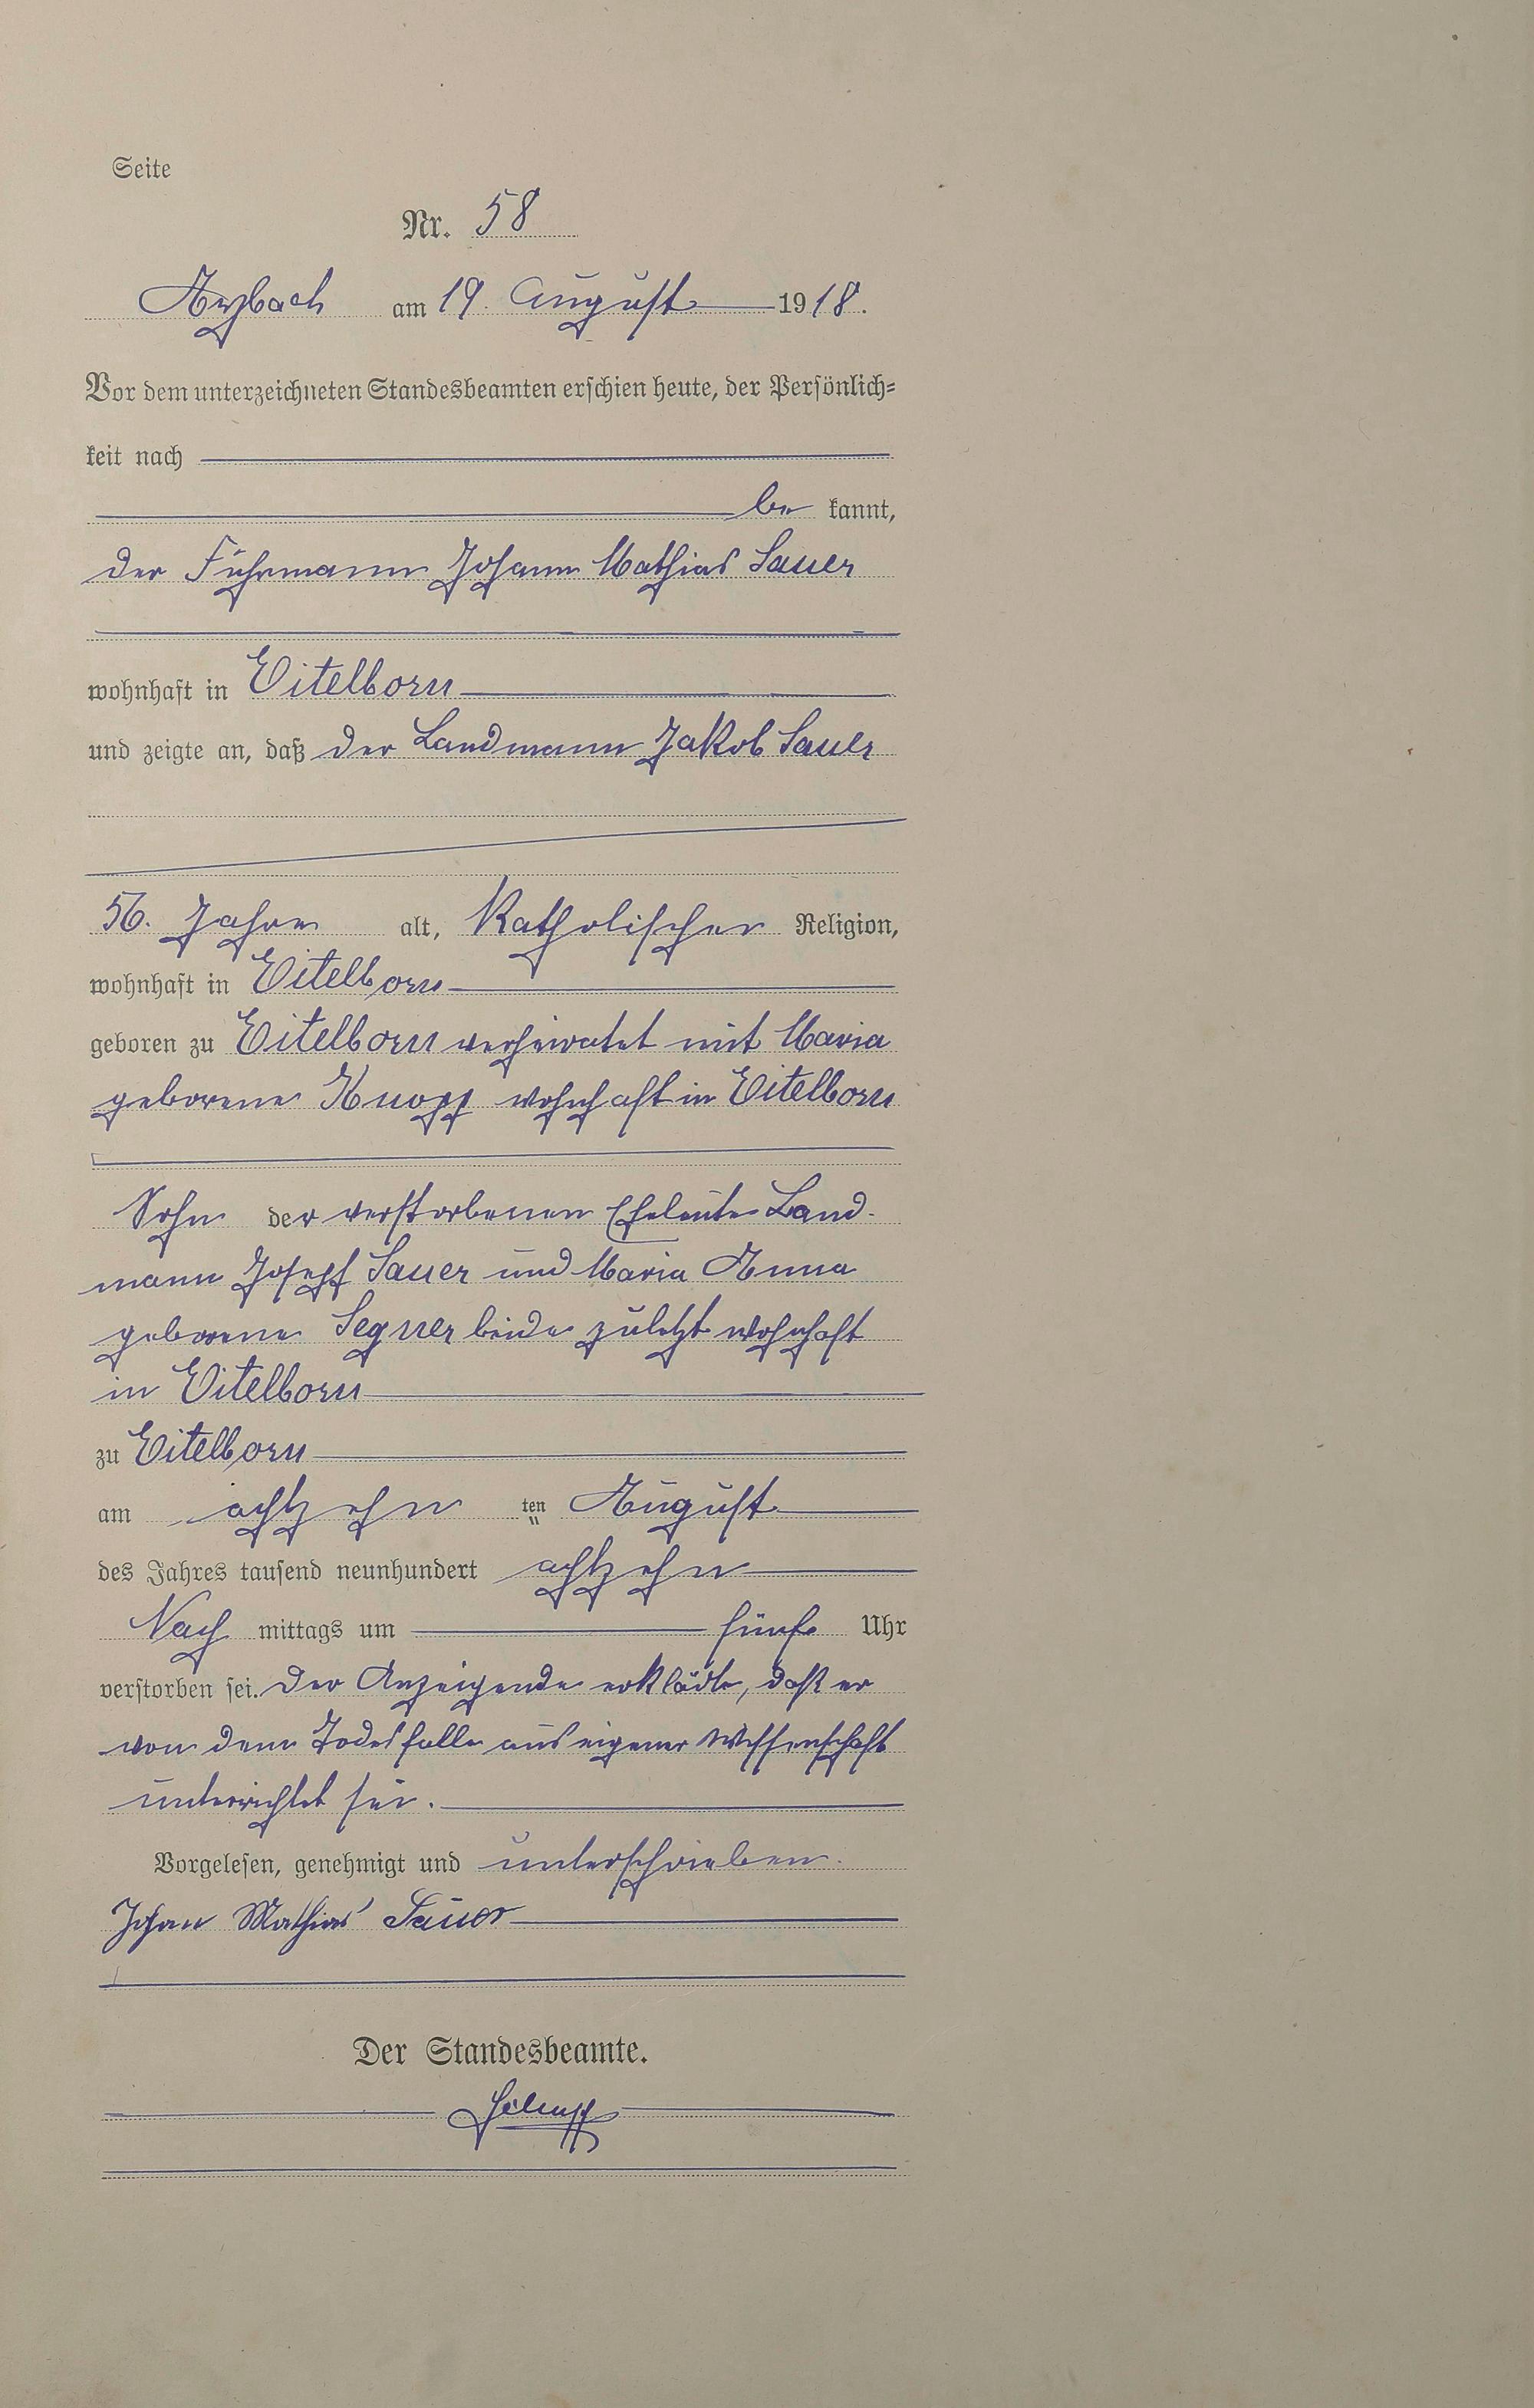 Seite
Nr. 58
Arzbach am 19. August 1918.
Vor dem unterzeichneten Standesbeamten erschien heute, der Persönlich=
keit nach
be kannt,
der Fuhrmann Johann Mathias Sauer
wohnhaft in Eitelborn
und zeigte an, daß der Landmann Jakob Sauer
56. Jahre alt, Katholischer Religion,
wohnhaft in Eitelborn
geboren zu Eitelborn verheiratet mit Maria
geborene Knopp wohnhaft in Eitelborn
Sohn der verstorbenen Eheleute Land-
mann Josepf Sauer und Maria Anna
geborene Segner beide zuletzt wohnhaft
in Eitelborn
zu Eitelborn
am achtzehn ten August
des Jahres tausend neunhundert achtzehn
Nach mittags um fünf Uhr
verstorben sei. Der Anzeigende erklärte, daß er
von dem Todesfalle aus eigener Wissenschaft
unterrichtet sei.
Vorgelesen, genehmigt und unterschrieben.
Johan Mathias Sauer
Der Standesbeamte.